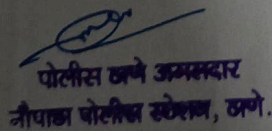 पोलीस ठाणे अंमलदार
नौपाडा पोलीस स्टेशन, ठाणे.